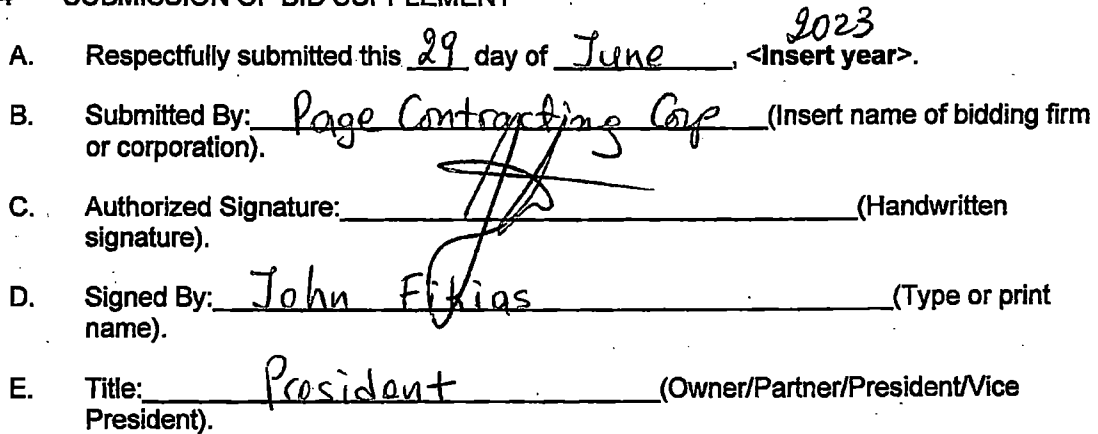 SUBMISSION OF BID SUPPLEMENT
2023
A. Respectfully submitted this 29 day of June, <Insert year>.
B. Submitted By: Page Contracting Corp (Insert name of bidding firm
or corporation).
C. Authorized Signature: (Handwritten
signature).
D. Signed By: John Fikias (Type or print
name).
E. Title: President (Owner/Partner/President/Vice
President).